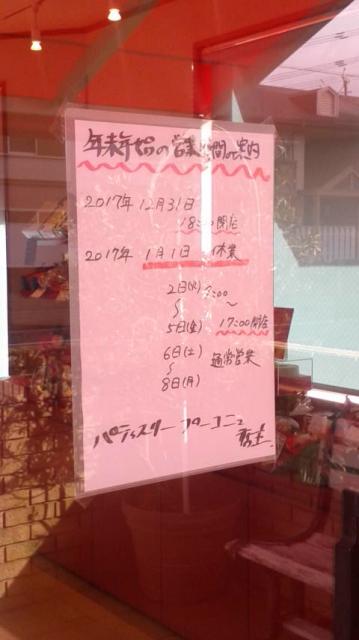 年末年始の営業時間のご案内
2017年 12月31日
18:00閉店
2017年 1月1日 休業
2日(火) 9:00
〜
5日(金) 17:00閉店
6日(土) 通常営業
〜
8日(月)
パティスリー
店主